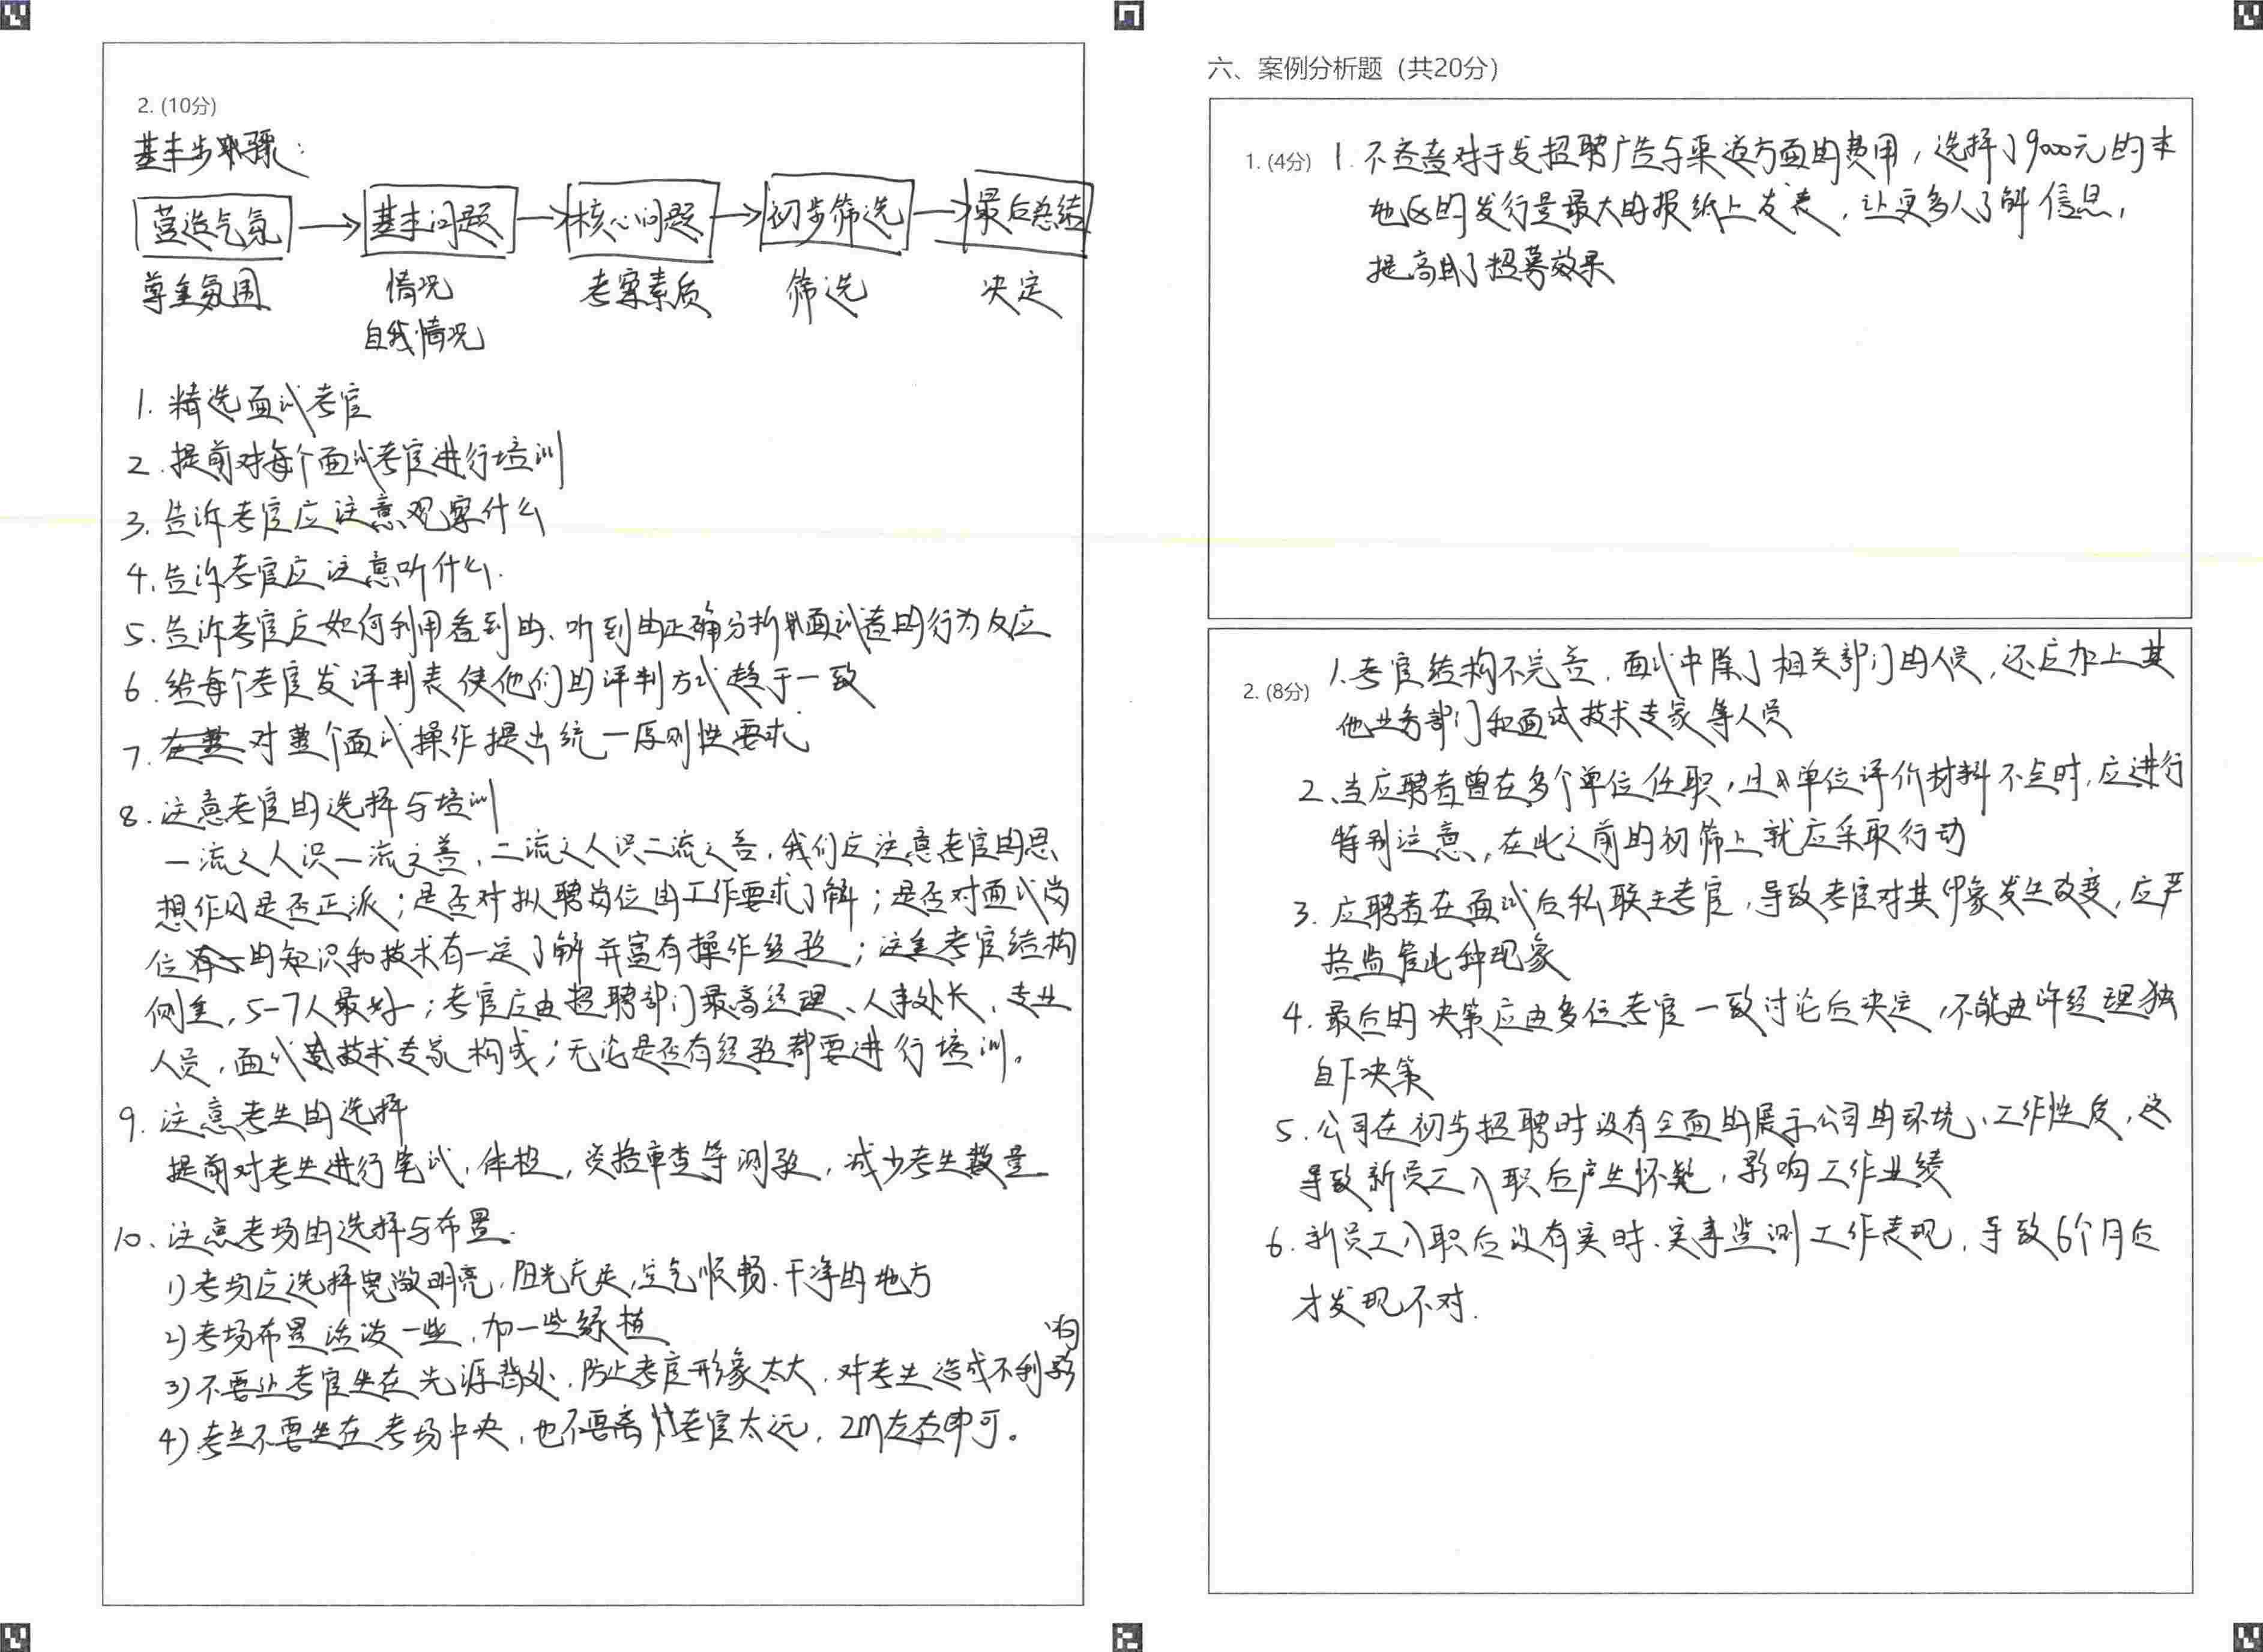 2. (10分)
基本步骤：
营造气氛 → 基本问题 → 核心问题 → 初步筛选 → 最后总结
尊重氛围 情况 考察素质 筛选 决定
自我情况
1. 精选面试考官
2. 提前对每个面试考官进行培训
3. 告诉考官应注意观察什么
4. 告诉考官应注意听什么.
5. 告诉考官应如何利用看到的、听到的正确分析面试者的行为反应
6. 给每个考官发评判表使他们的评判方式趋于一致
7. 对整个面试操作提出统一原则性要求
8. 注意考官的选择与培训
一流之人识一流之善，二流之人识二流之善，我们应注意考官的思
想作风是否正派；是否对拟聘岗位的工作要求了解；是否对面试岗
位的知识和技术有一定了解并富有操作经验；注重考官结构
侧重，5-7人最好；考官应由招聘部门最高经理、人事处长、专业
人员，面试技术专家构成；无论是否有经验都要进行培训。
9. 注意考生的选择
提前对考生进行笔试，体检，资格审查等测验，减少考生数量
10、注意考场的选择与布置.
1) 考场应选择宽敞明亮，阳光充足，空气顺畅、干净的地方
2) 考场布置活泼一些，加一些绿植
3) 不要让考官坐在光源背处，防止考官形象太大，对考生造成不利影响
4) 考生不要坐在考场中央，也不要离考官太远，2m左右即可。
六、案例分析题（共20分）
1. (4分) 1. 不吝啬对于发招聘广告与渠道方面的费用，选择了9000元的本
地区的发行量最大的报纸上发表，让更多人了解信息，
提高了招募效果
2. (8分) 1. 考官结构不完善，面试中除了相关部门的人员，还应加上其
他业务部门和面试技术专家等人员
2、当应聘者曾在多个单位任职，且单位评价材料不全时，应进行
特别注意，在此之前的初筛上就应采取行动
3. 应聘者在面试后私联主考官，导致考官对其印象发生改变，应严
格监管此种现象
4. 最后的决策应由多位考官一致讨论后决定，不能由许经理独
自下决策
5. 公司在初步招聘时没有全面的展示公司的环境、工作性质，这
导致新员工入职后产生怀疑，影响工作业绩
6. 新员工入职后没有实时、实事监测工作表现，导致6个月后
才发现不对.